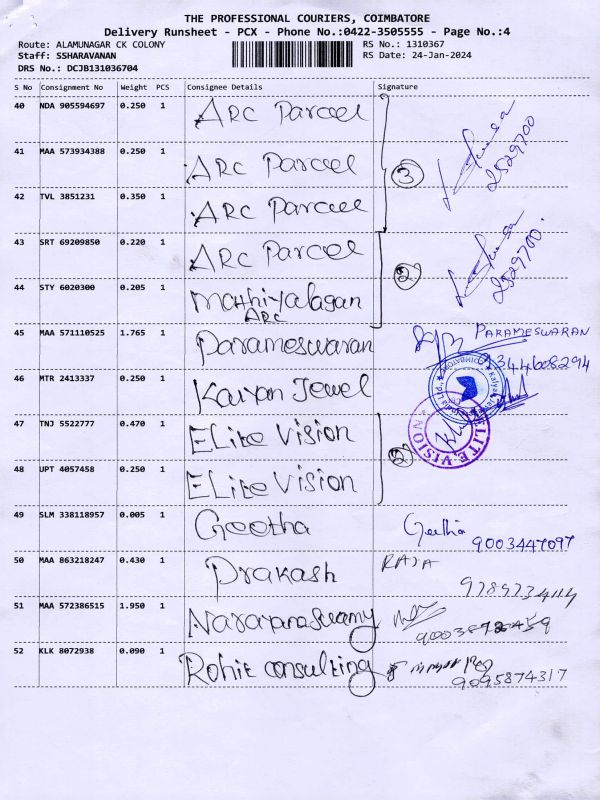 THE PROFESSIONAL COURIERS, COIMBATORE
Delivery Runsheet - PCX - Phone No.:0422-3505555 - Page No.:4
Route: ALAMUNAGAR CK COLONY RS No.: 1310367
Staff: SSHARAVANAN RS Date: 24-Jan-2024
DRS No.: DCJB131036704
S No Consignment No Weight PCS Consignee Details Signature
40 NDA 905594697 0.250 1 ARC Parcel
41 MAA 573934388 0.250 1 ARC Parcel
3 2529700
42 TVL 3851231 0.350 1 ARC Parcel
43 SRT 69209850 0.220 1 ARC Parcel
2 2529700.
44 STY 6020300 0.205 1 Mathiyalagan
ARC
45 MAA 571110525 1.765 1 Parameswaran PARAMESWARAN
9344608294
46 MTR 2413337 0.250 1 Kalyan Jewel
47 TNJ 5522777 0.470 1 ELite Vision
2 ELITE VISION
48 UPT 4057458 0.250 1 ELite Vision
49 SLM 338118957 0.005 1 Geetha Geetha
9003447097
50 MAA 863218247 0.430 1 Prakash RAJA
51 MAA 572386515 1.950 1 Narayanaswamy
52 KLK 8072938 0.090 1 Rohit consulting
9095874317